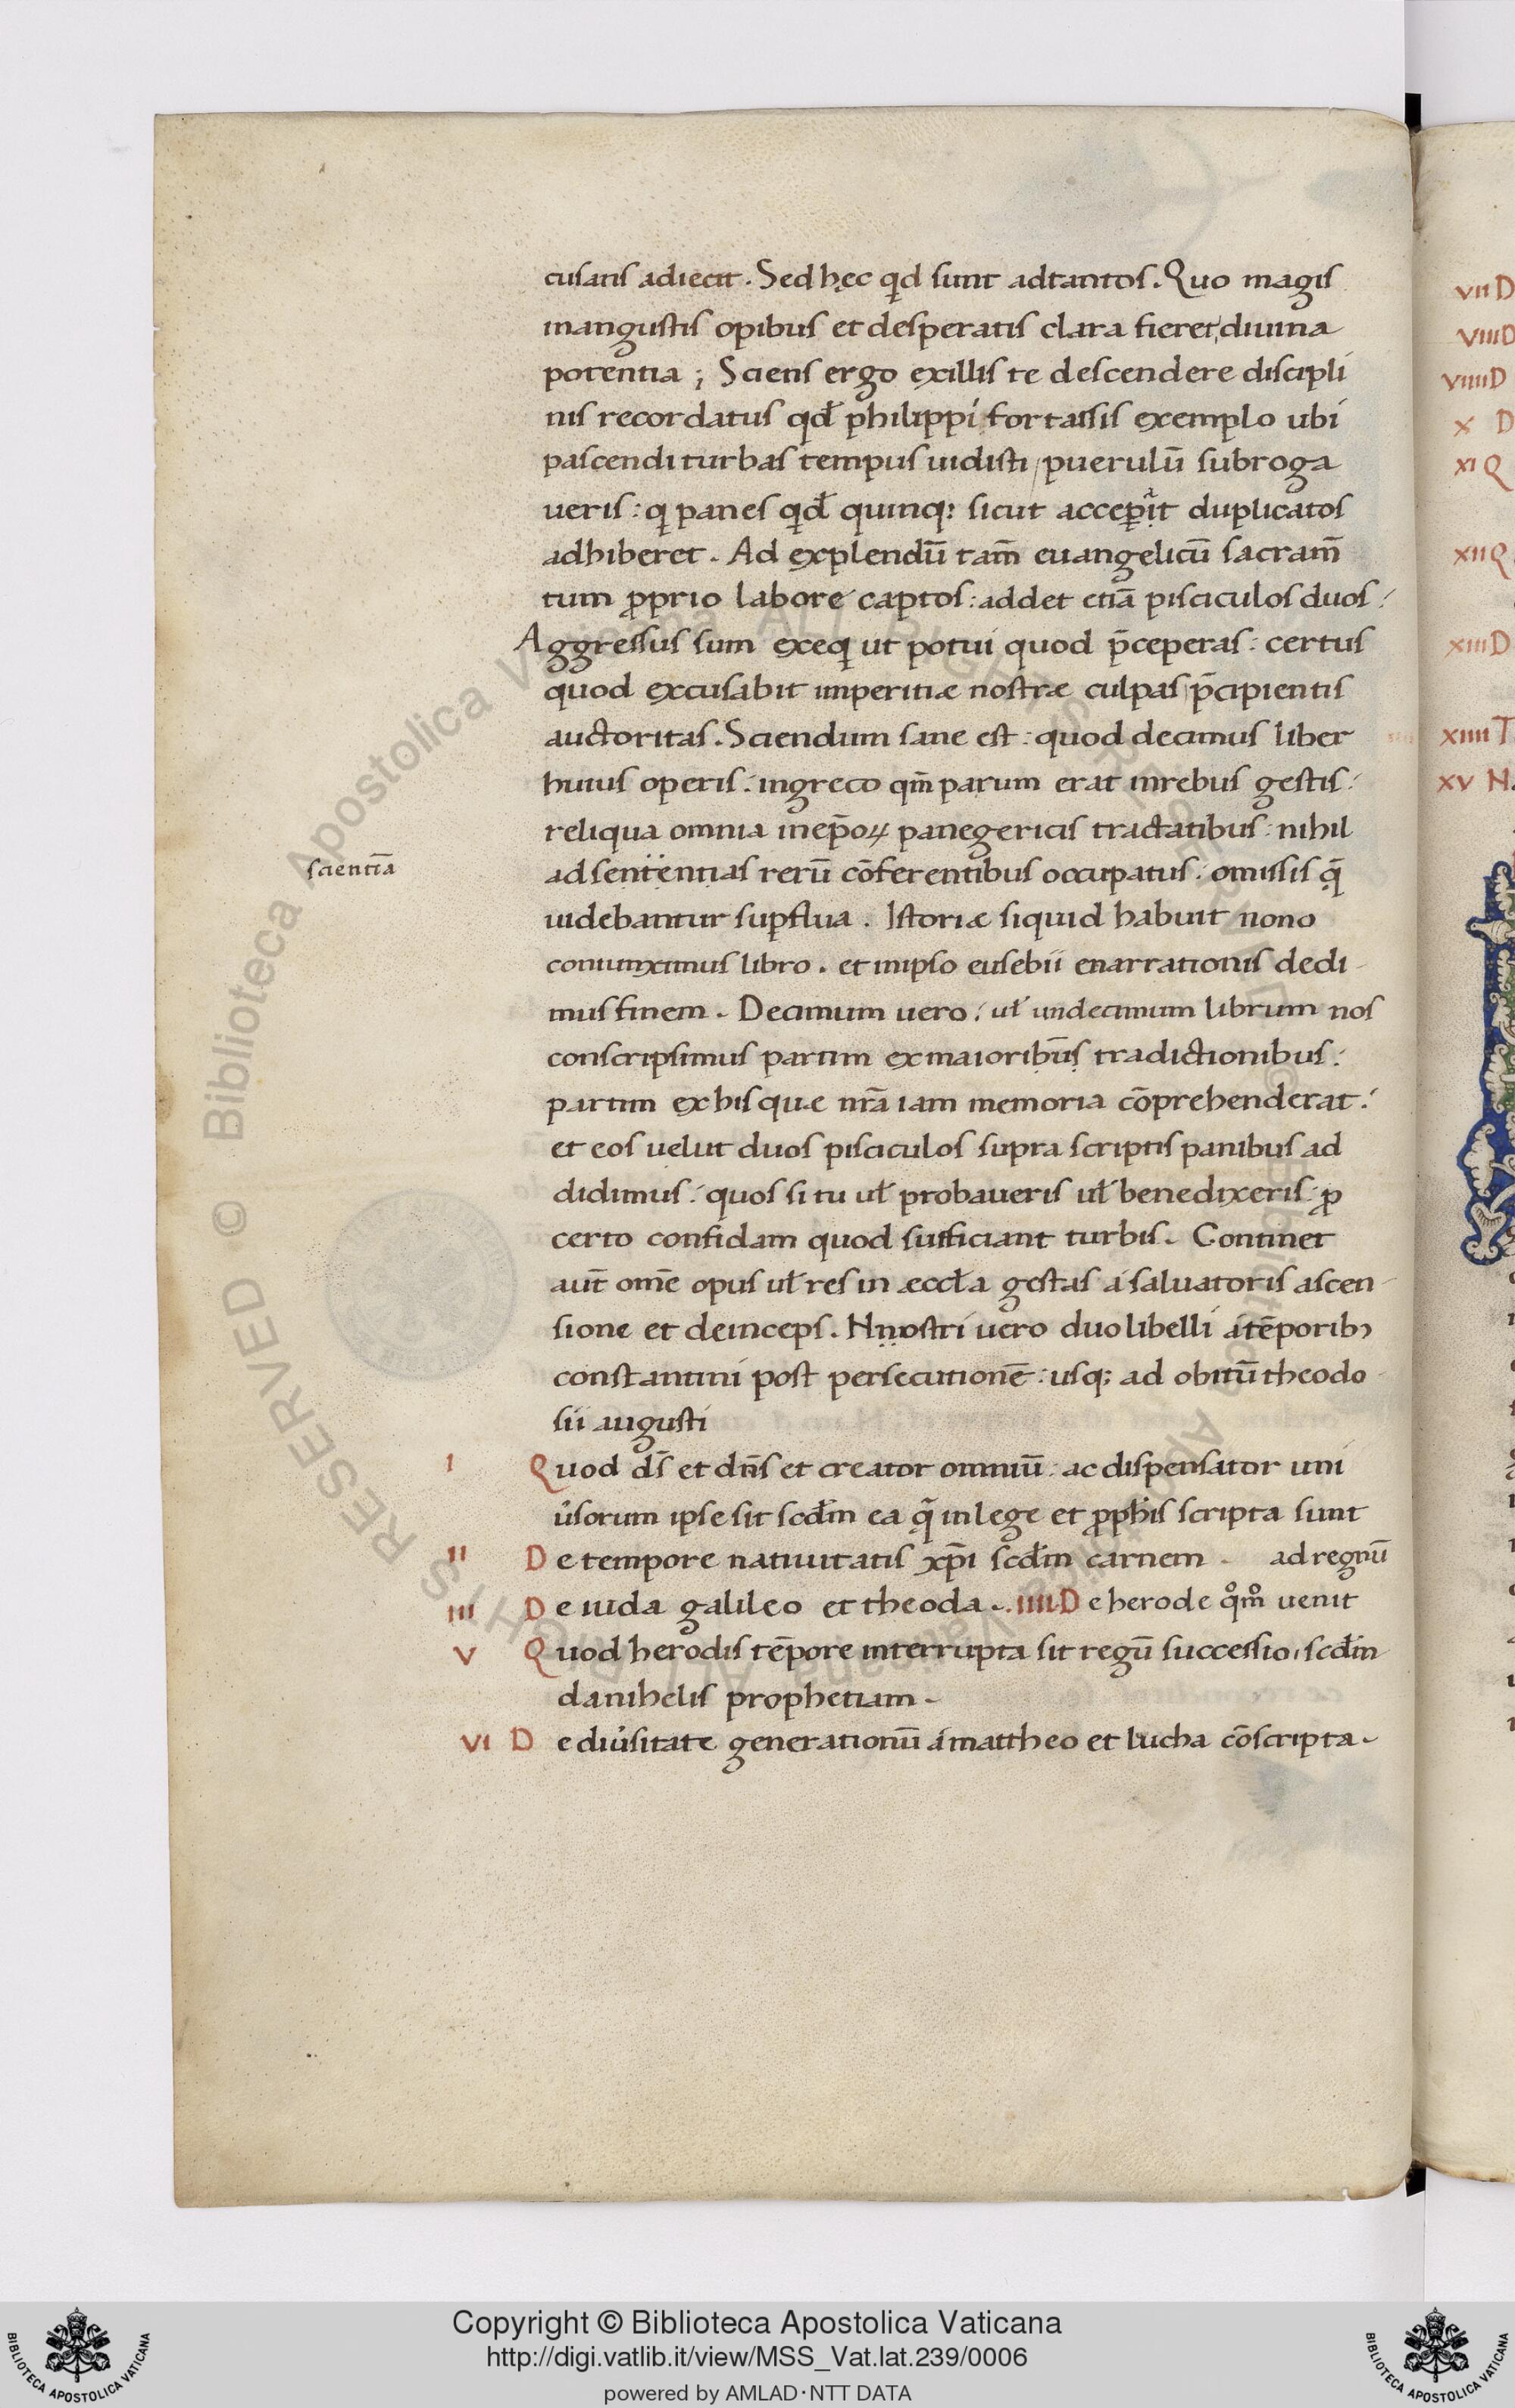 cusans adiecit. Sed hęc qd sunt adtantos. Quo magis
inangustis opibus et desperatis clara fieret, diuina
potentia; Sciens ergo exillis te descendere discipli
nis recordatus qđ philippi fortassis exemplo ubi
pascendi turbas tempus uidisti, puerulū subroga
ueris: q panes qđ quinq; sicut acceperit duplicatos
adhiberet. Ad explendū tam̄ euangelicū sacram̄
tum ꝓprio labore captos: addet etiā pisciculos duos:
Aggressus sum exeq ut potui quod p̄ceperas: certus
quod excusabit imperitiæ nostræ culpas p̄cipientis
auctoritas. Sciendum sane est: quod decimus liber
huius operis: ingreco qm̄ parum erat inrebus gestis:
reliqua omnia inep̄oꝝ panegericis tractatibus: nihil
scientīa
ad sententias rerū cōferentibus occupatus: omissis q̄
uidebantur suꝑflua. Istoriæ siquid habuit nono
coniunximus libro. et inipso eusebii enarrationis dedi
mus finem. Decimum uero: uł undecimum librum nos
conscripsimus partim exmaioribus tradictionibus:
partim exhis quæ nr̄a iam memoria cōprehenderat:
et eos uelut duos pisciculos supra scriptis panibus ad
didimus: quos si tu uł probaueris uł benedixeris: ꝓ
certo confidam quod sufficiant turbis. Continet
aut̄ om̄e opus uł res in æccła gestas a saluatoris ascen
sione et deinceps. Nnostri uero duo libelli a tēporibꝫ
constantini post persecutionē: usq; ad obitū theodo
sii augusti
I Quod dс̄ et dn̄s et creator omniū: ac dispensator uni
u͛sorum ipse sit scđm ea q̄ inlege et ꝓph̄is scripta sunt
II De tempore natiuitatis xp̄i scđm carnem. ad regnū
III De iuda galileo et theoda. IIII. De herode qͦm̊ uenit
V Quod herodis tēpore interrupta sit regū successio, scđm
danihelis prophetiam.
VI De diu͛sitate generationū a mattheo et lucha cōscripta.
VII D
VIII D
VIIII D
X D
XI Q
XII Q
XIII D
XIIII T
XV N
Copyright © Biblioteca Apostolica Vaticana
http://digi.vatlib.it/view/MSS_Vat.lat.239/0006
powered by AMLAD·NTT DATA
BIBLIOTECA APOSTOLICA VATICANA
BIBLIOTECA APOSTOLICA VATICANA